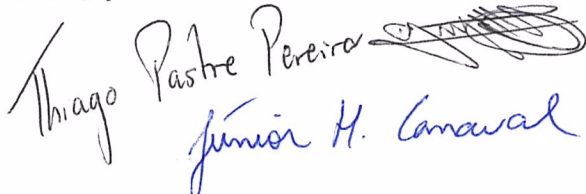 Thiago Pastre Pereira
Júnior M. Canaval